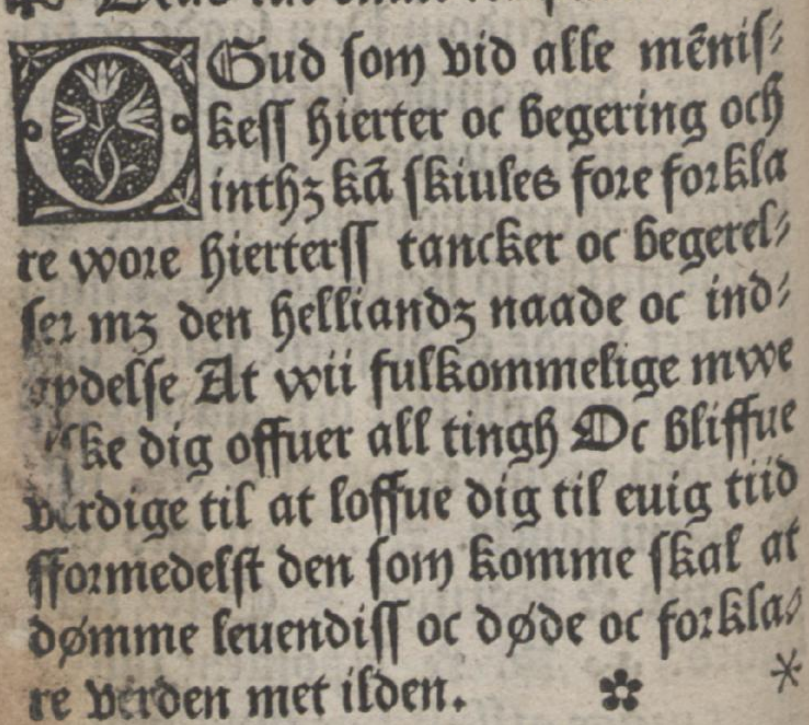 O Gud som vid alle mēnis⸗
kess hierter oc begering och
inthꝫ kā skiules fore forkla
re wore hierterss tancker oc begerel⸗
ser mꝫ den helliandꝫ naade oc ind⸗
At wii fulkommelige mwe
dig offuer all tingh Oc bliffue
verdige til at loffue dig til euig tiid
fformedelst den som komme skal at
dømme leuendiss oc døde oc forkla⸗
re verden met ilden.